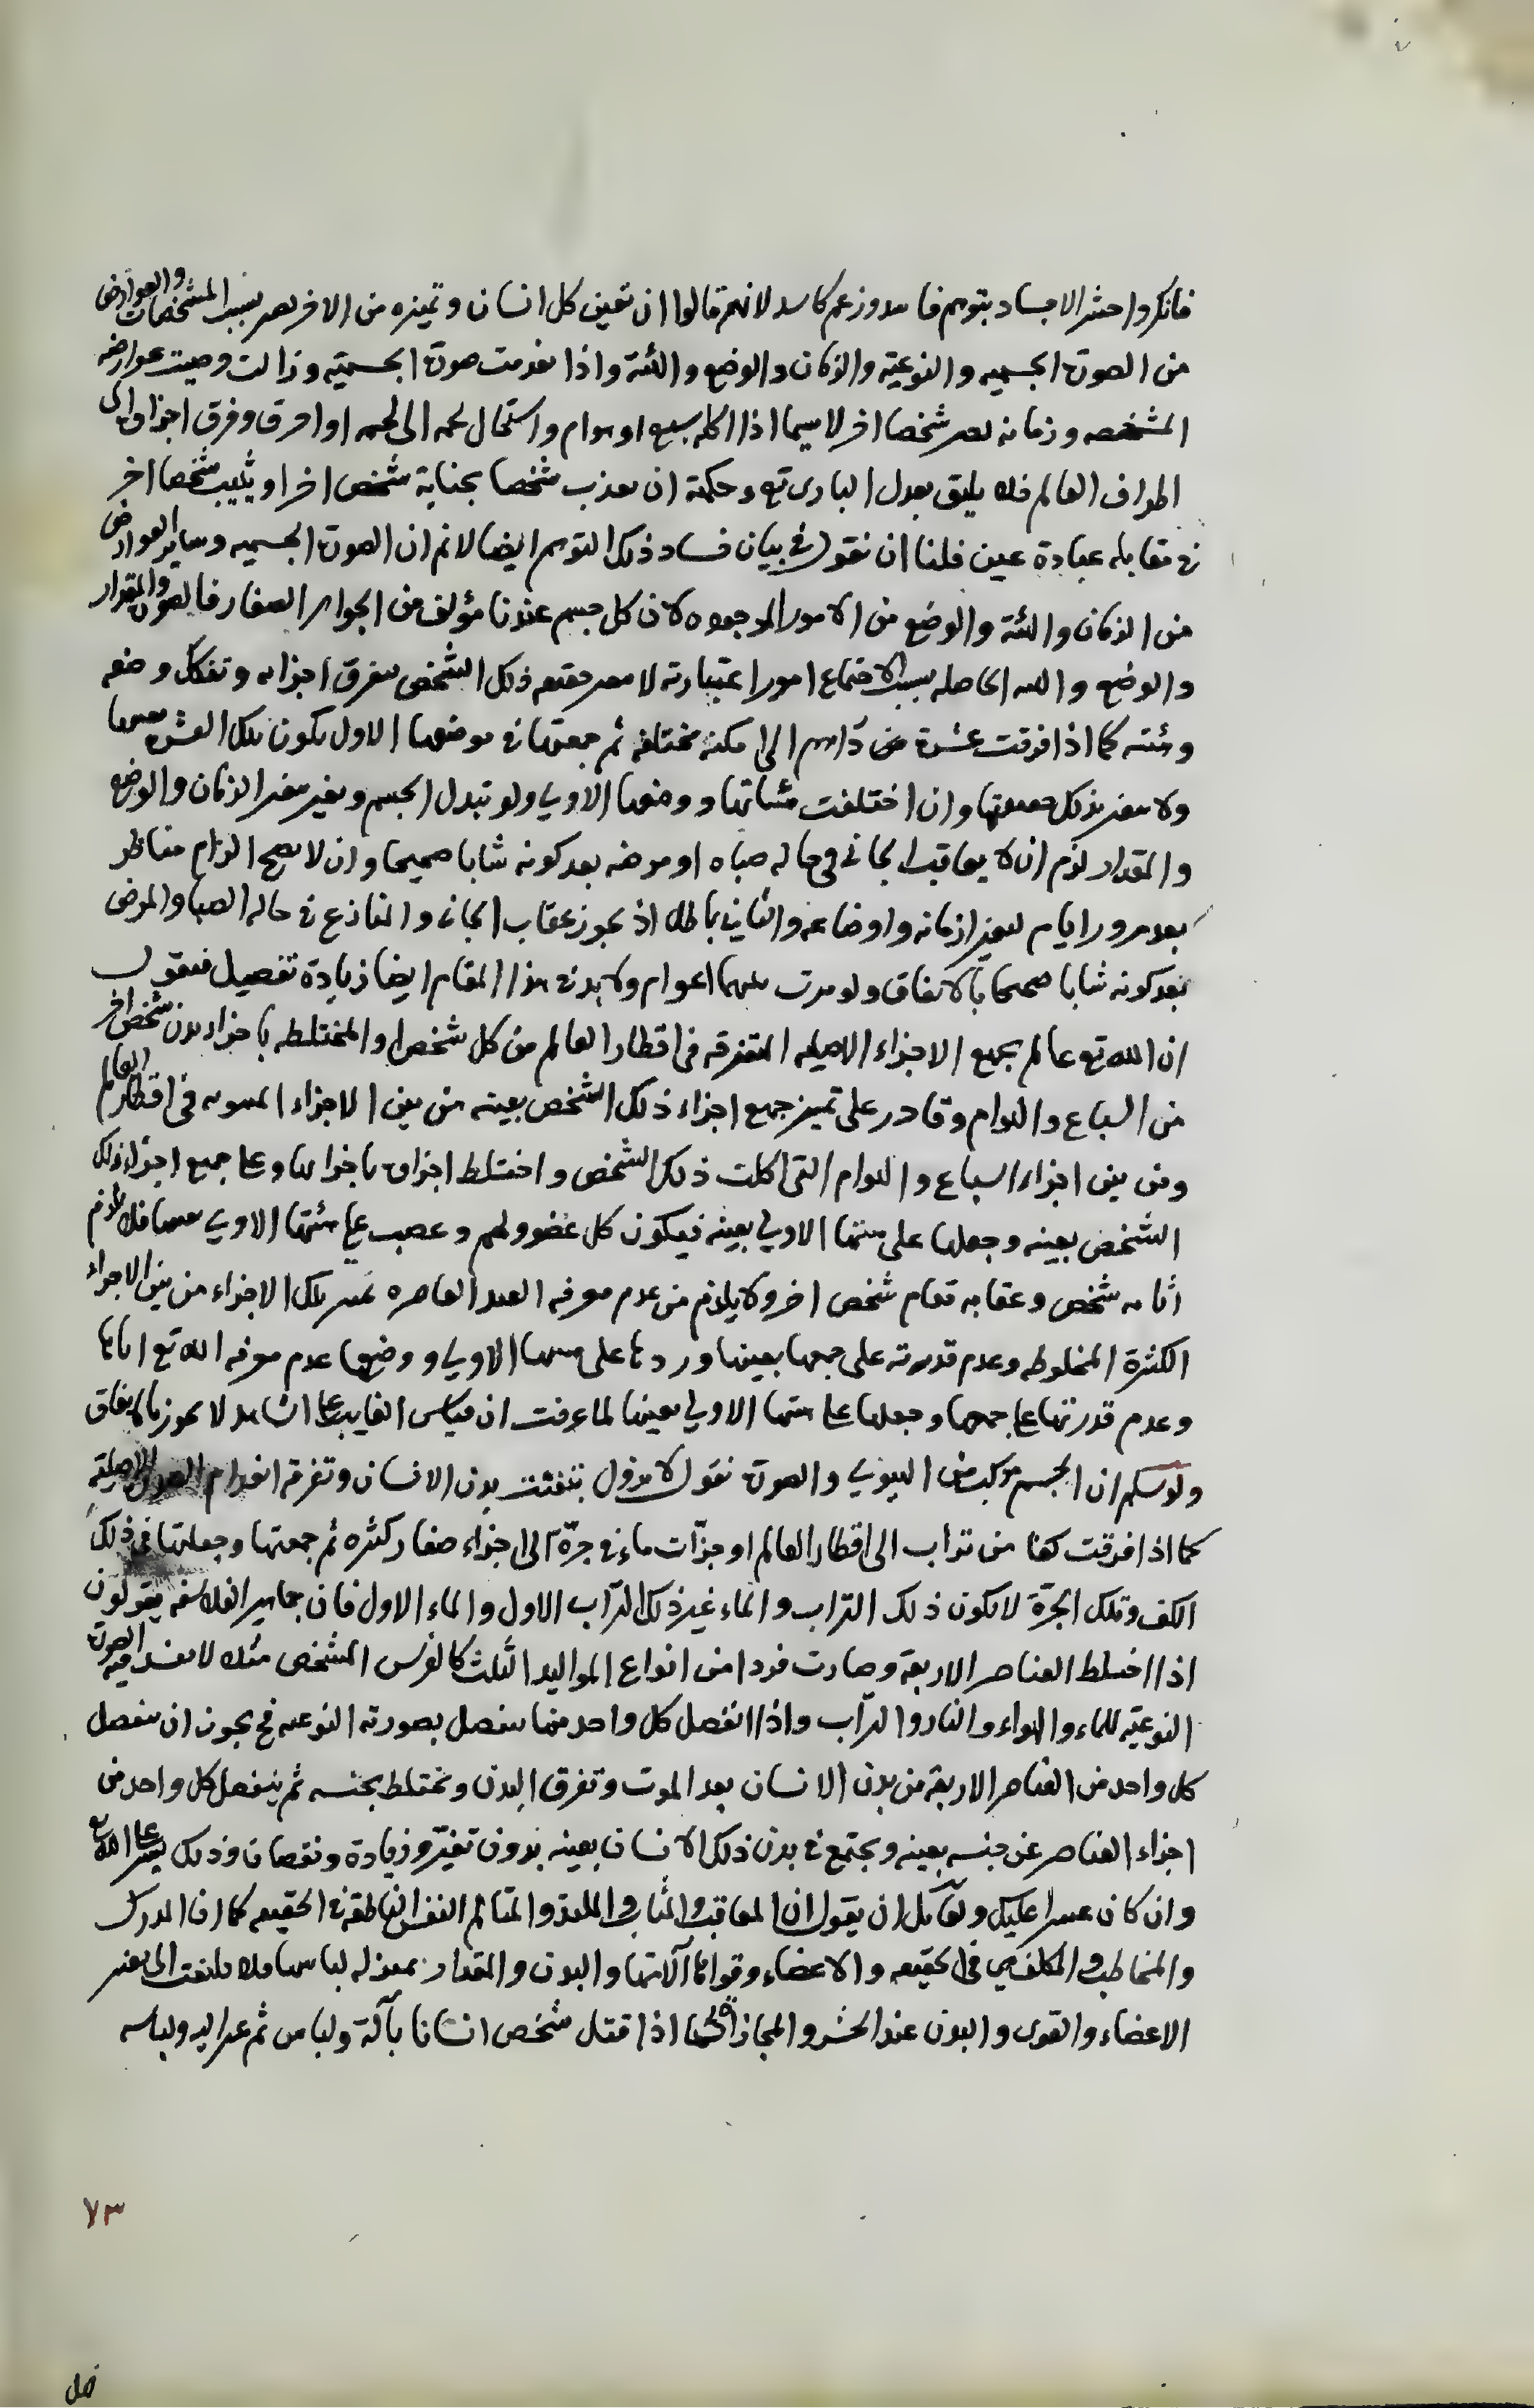 فانكروا حشر الاجساد بتوهم فاسد وزعم كاسد لانهم قالوا ان تعين كل انسان وتميزه من الاخر يصير بسبب المشخصات والعوارض
من الصورة الجسميه والنوعية والزمان والوضع والهيئة واذا انعدمت صورته الجسمية وزالت عوارضه
المشخصه وزمانه يصير شخصا اخر لاسيما اذا اكله سبع او هوام واستحال لحمه الى لحمه او احرق وفرق اجزاؤه الى
اطراف العالم فلا يليق بعدل البارى تع وحكمة ان يعذب شخصا بجناية شخص اخر او يثيب شخصا اخر
فى مقابله عبادة عين فلنا ان نقول فى بيان فساد ذلك التوهم ايضا لانم ان الصورة الجسميه وساير العوارض
من الزمان والهيئة والوضع من الامور الموجوده لان كل جسم عندنا مؤلف من الجواهر الصغار فالصورة والمقدار
والوضع والهيئه الحاصله بسبب الاجتماع امور اعتبارية لا يتغير حقيقه ذلك الشخص بتفرق اجزائه وتفكك وضعه
وهيئته كما اذا فرقت عشرة من دراهم الى امكنة مختلفه ثم جمعتها فى موضعها الاول يكون تلك العشرة بعينها
ولا يتغير بذلك حقيقتها وان اختلفت هيئاتها ووضعها الاولى ولو تبدل الجسم وتغير بتغير الزمان والوضع
والمقدار لزم ان لا يعاقب الجانى فى حاله صباه او مرضه بعد كونه شابا صحيحا وان لا يصح الزام مناظر
بعد مرور ايام لتغير ازمانه واوضاعه والثانى باطل اذ يجوز عقاب الجانى والمنازع فى حاله الصبا والمرض
بعد كونه شابا صحيحا بالاتفاق ولو مرت عليهما اعوام ولا بد فى هذا المقام ايضا زيادة تفصيل فنقول
ان الله تع عالم بجميع الاجزاء الاصليه المتفرقه فى اقطار العالم من كل شخص والمختلطه باجزاء بدن شخص اخر
من السباع والهوام وقادر على تميز جميع اجزاء ذلك الشخص بعينه من بين الاجزاء فى اقطار العالم
ومن بين اجزاء السباع والهوام التى اكلت ذلك الشخص واختلط اجزاؤه باجزائها وعلى جميع اجزاء ذلك
الشخص بعينه وجعلها على هيئتها الاولى بعينه فيكون كل عضو ولحم وعصب على هيئتها الاولى بعينها فلا يلزم
اثابه شخص وعقابه مقام شخص اخر ولا يلزم من عدم معرفه العبد القاصره تميز تلك الاجزاء من بين الاجزاء
الكثيرة المخلوطه وعدم قدرته على جمعها بعينها وردها على هيئتها الاولى ووضعها عدم معرفه الله تع اياها
وعدم قدرتها على جمعها وجعلها على هيئتها الاولى بعينها لما عرفت ان قياس الغايب على الشاهد لا يجوز بالاتفاق
ولو سلم ان الجسم مركب من الهيولى والصورة نقول لا يزول بتفتت بدن الانسان وتفرقه انعدام الصورة الاصلية
كما اذا فرقت كفا من تراب الى اقطار العالم او جزّات ماء فى جرّة الى اجزاء صغار كثيره ثم جمعتها وجعلتها فى ذلك
الكف وتلك الجرّة لا يكون ذلك التراب والماء غير ذلك التراب الاول والماء الاول فان جماهير الفلاسفه يقولون
اذا اختلط العناصر الاربعة وصارت فردا من انواع المواليد الثلث كالفرس المشخص مثلا لا يفسد فيه الصورة
النوعية للماء والهواء والنار والتراب واذا انفصل كل واحد منها ينفصل بصورته النوعيه فح يجوز ان ينفصل
كل واحد من العناصر الاربعة من بدن الانسان بعد الموت وتفرق البدن ويختلط بجنسه ثم ينفصل كل واحد من
اجزاء العناصر عن جنسه بعينه ويجتمع فى بدن ذلك الانسان بعينه بدون تغيّر وزيادة ونقصان وذلك يسير على الله تع
وان كان عسيرا عليك ولقائل ان يقول ان المعاقب والمثاب والملتذ والمتالم النفس الناطقة فى الحقيقه كما ان المدرك
والمخاطب والمكلف هى فى الحقيقه والاعضاء وقواها آلاتها والبدن والمقدار بمنزله لباسها فلا يلتفت الى تغير
الاعضاء والقوى والبدن عند الحشر والمجازاة كما اذا قتل شخص انسانا بآلة ولباس ثم غير اليه ولباسه
٧٣